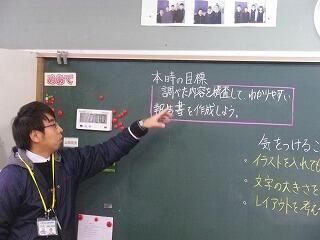 めあて
本時の目標
調べた内容を精査して、わかりやすい
報告書を作成しよう。
気をつけること
・イラストを入れても
・文字の大きさを
・レイアウトを考え